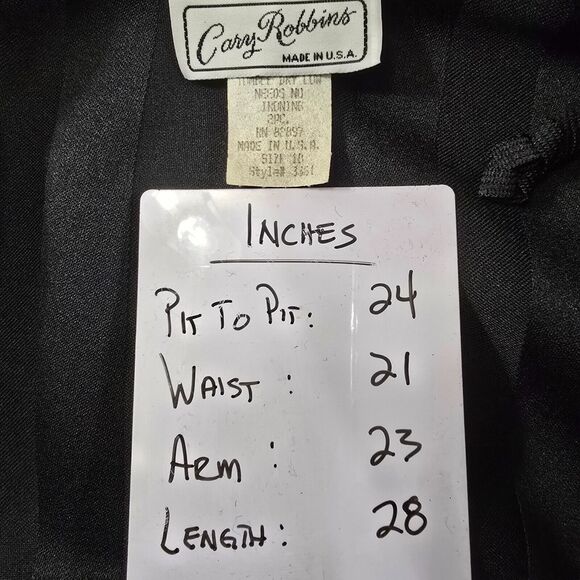 Cary Robbins
MADE IN U.S.A.
TUMBLE DRY LOW
NEEDS NO
IRONING
2PC.
MADE IN U.S.A.
SIZE 10
INCHES
PIT TO PIT: 24
WAIST: 21
ARM: 23
LENGTH: 28